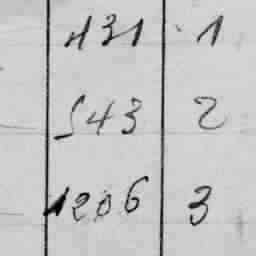 431 1
543 2
1206 3